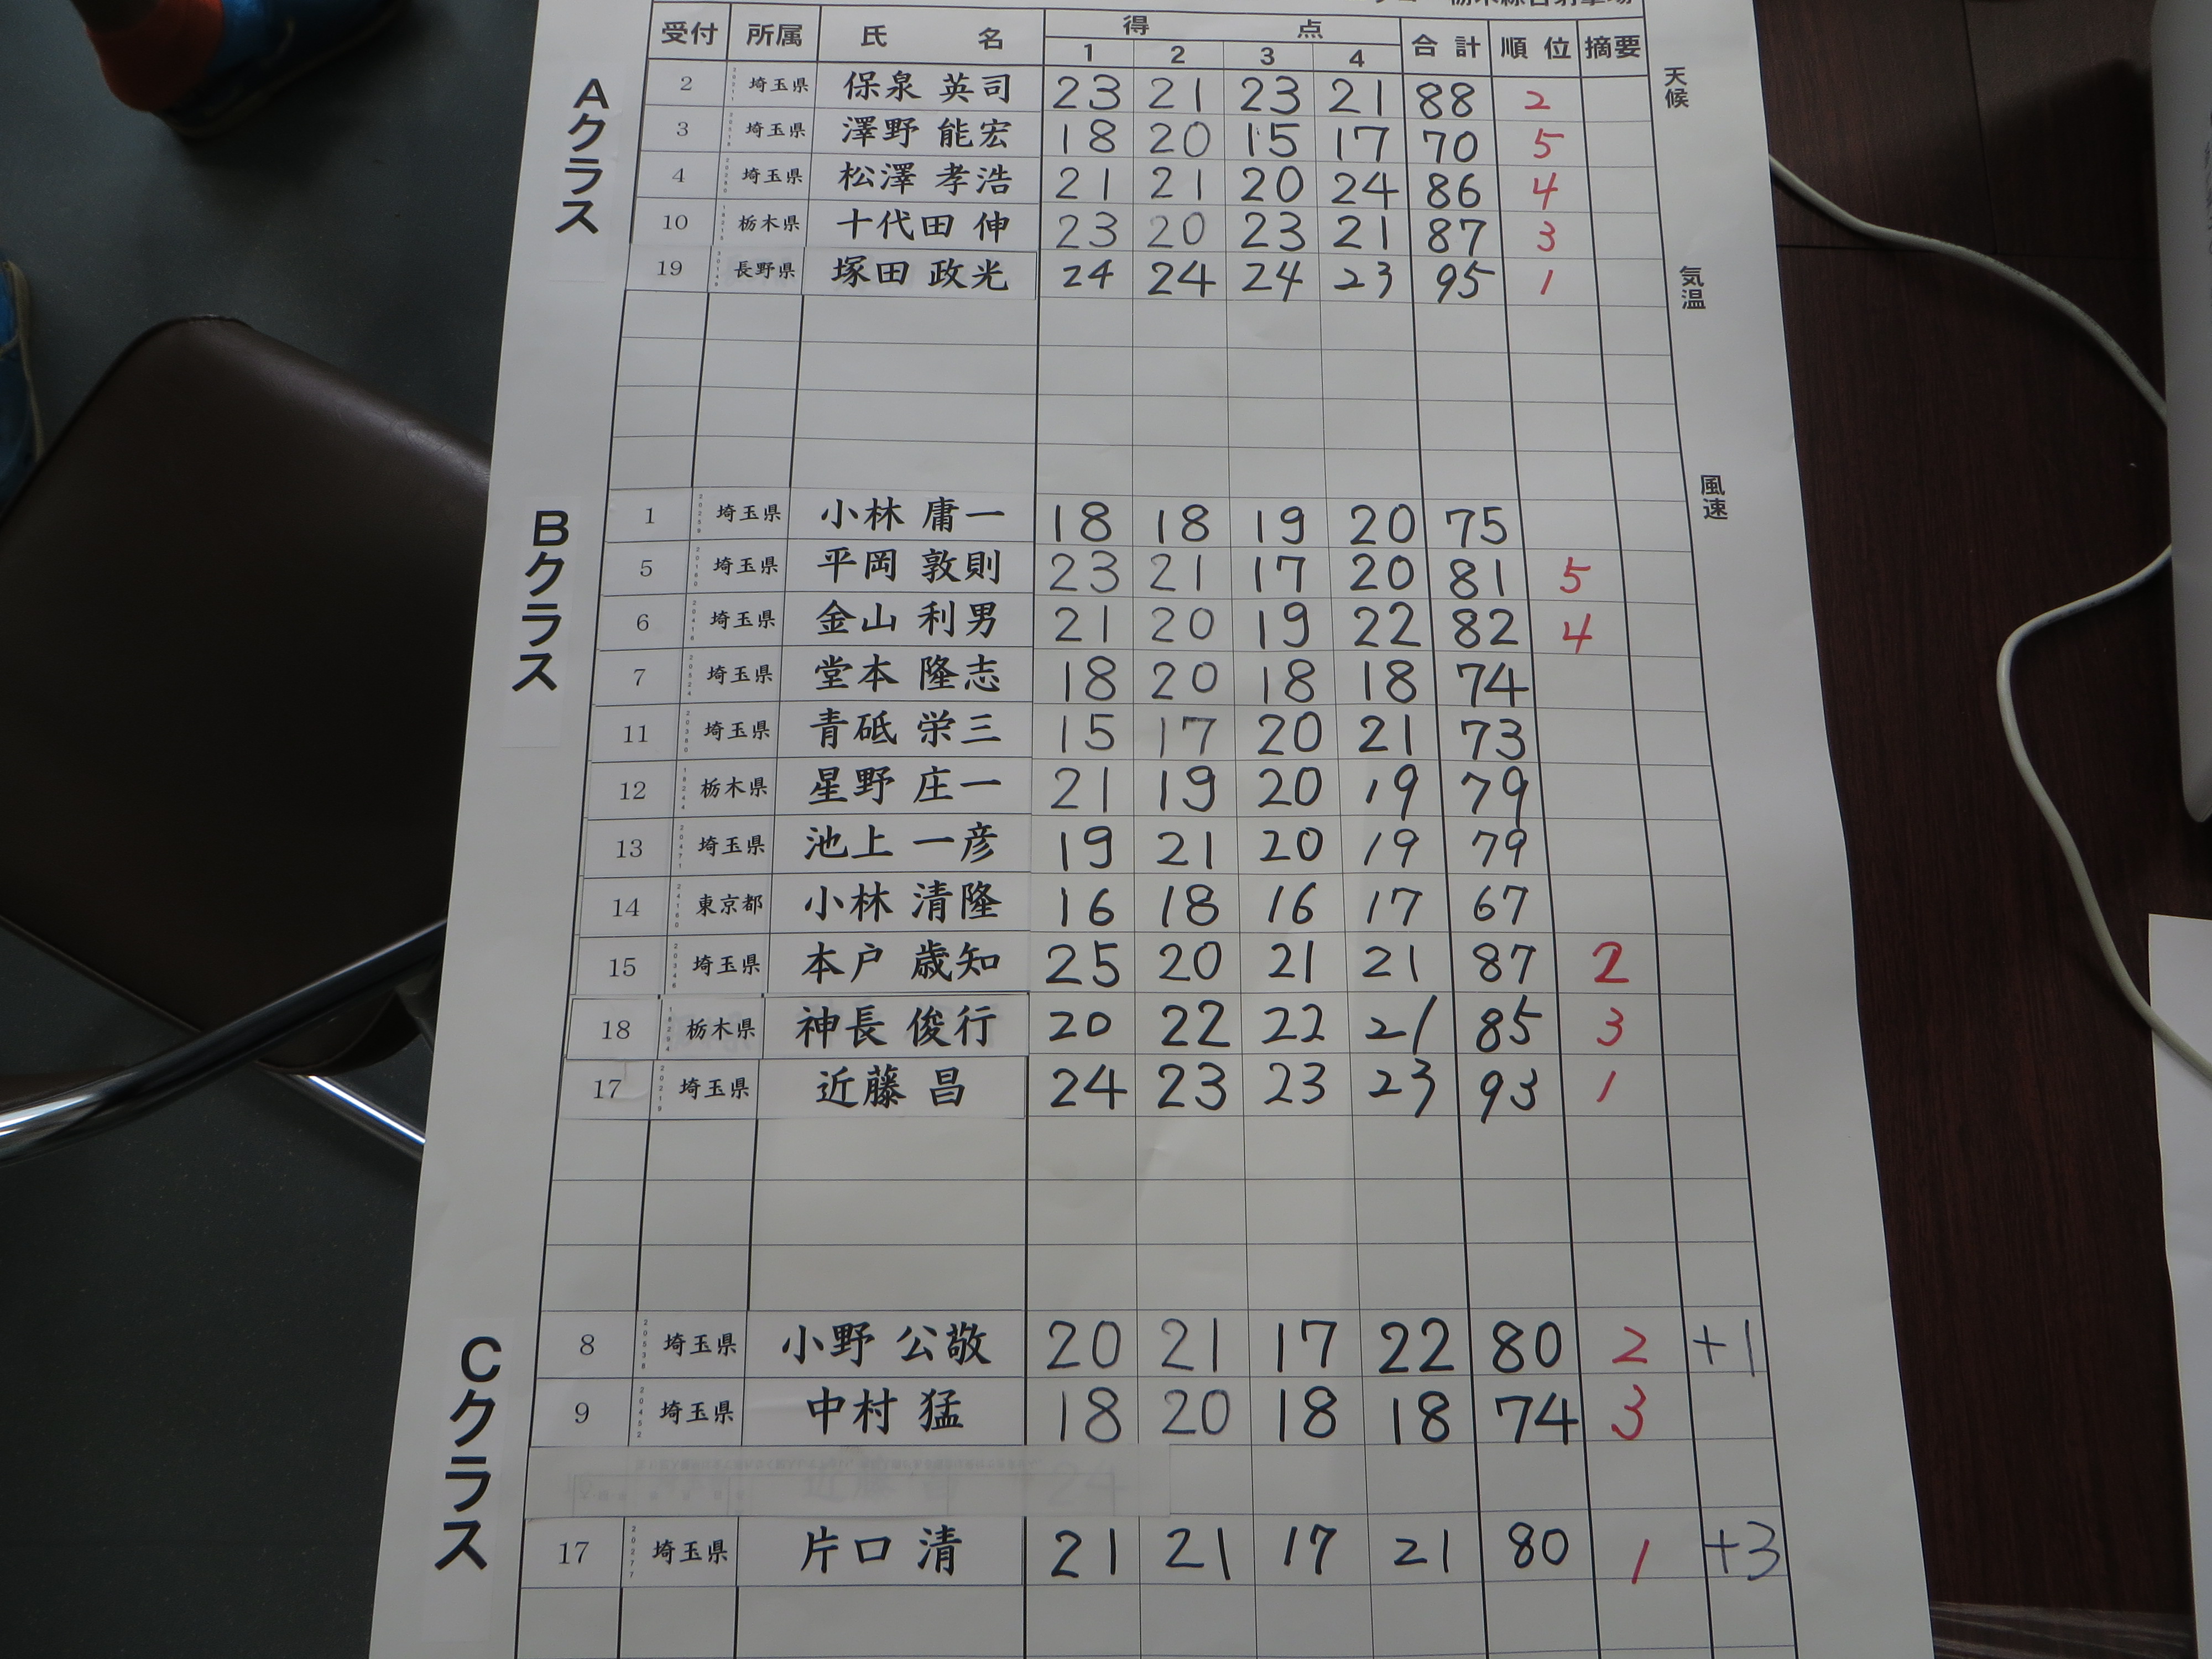 受付 所属 氏 名 得 点 合 計 順 位 摘要
1 2 3 4
天候
気温
風速
Aクラス
2 埼玉県 保泉 英司 23 21 23 21 88 2
3 埼玉県 澤野 能宏 18 20 15 17 70 5
4 埼玉県 松澤 孝浩 21 21 20 24 86 4
10 栃木県 十代田 伸 23 20 23 21 87 3
19 長野県 塚田 政光 24 24 24 23 95 1
Bクラス
1 埼玉県 小林 庸一 18 18 19 20 75
5 埼玉県 平岡 敦則 23 21 17 20 81 5
6 埼玉県 金山 利男 21 20 19 22 82 4
7 埼玉県 堂本 隆志 18 20 18 18 74
11 埼玉県 青砥 栄三 15 17 20 21 73
12 栃木県 星野 庄一 21 19 20 19 79
13 埼玉県 池上 一彦 19 21 20 19 79
14 東京都 小林 清隆 16 18 16 17 67
15 埼玉県 本戸 歳知 25 20 21 21 87 2
18 栃木県 神長 俊行 20 22 22 21 85 3
17 埼玉県 近藤 昌 24 23 23 23 93 1
Cクラス
8 埼玉県 小野 公敬 20 21 17 22 80 2 +1
9 埼玉県 中村 猛 18 20 18 18 74 3
17 埼玉県 片口 清 21 21 17 21 80 1 +3